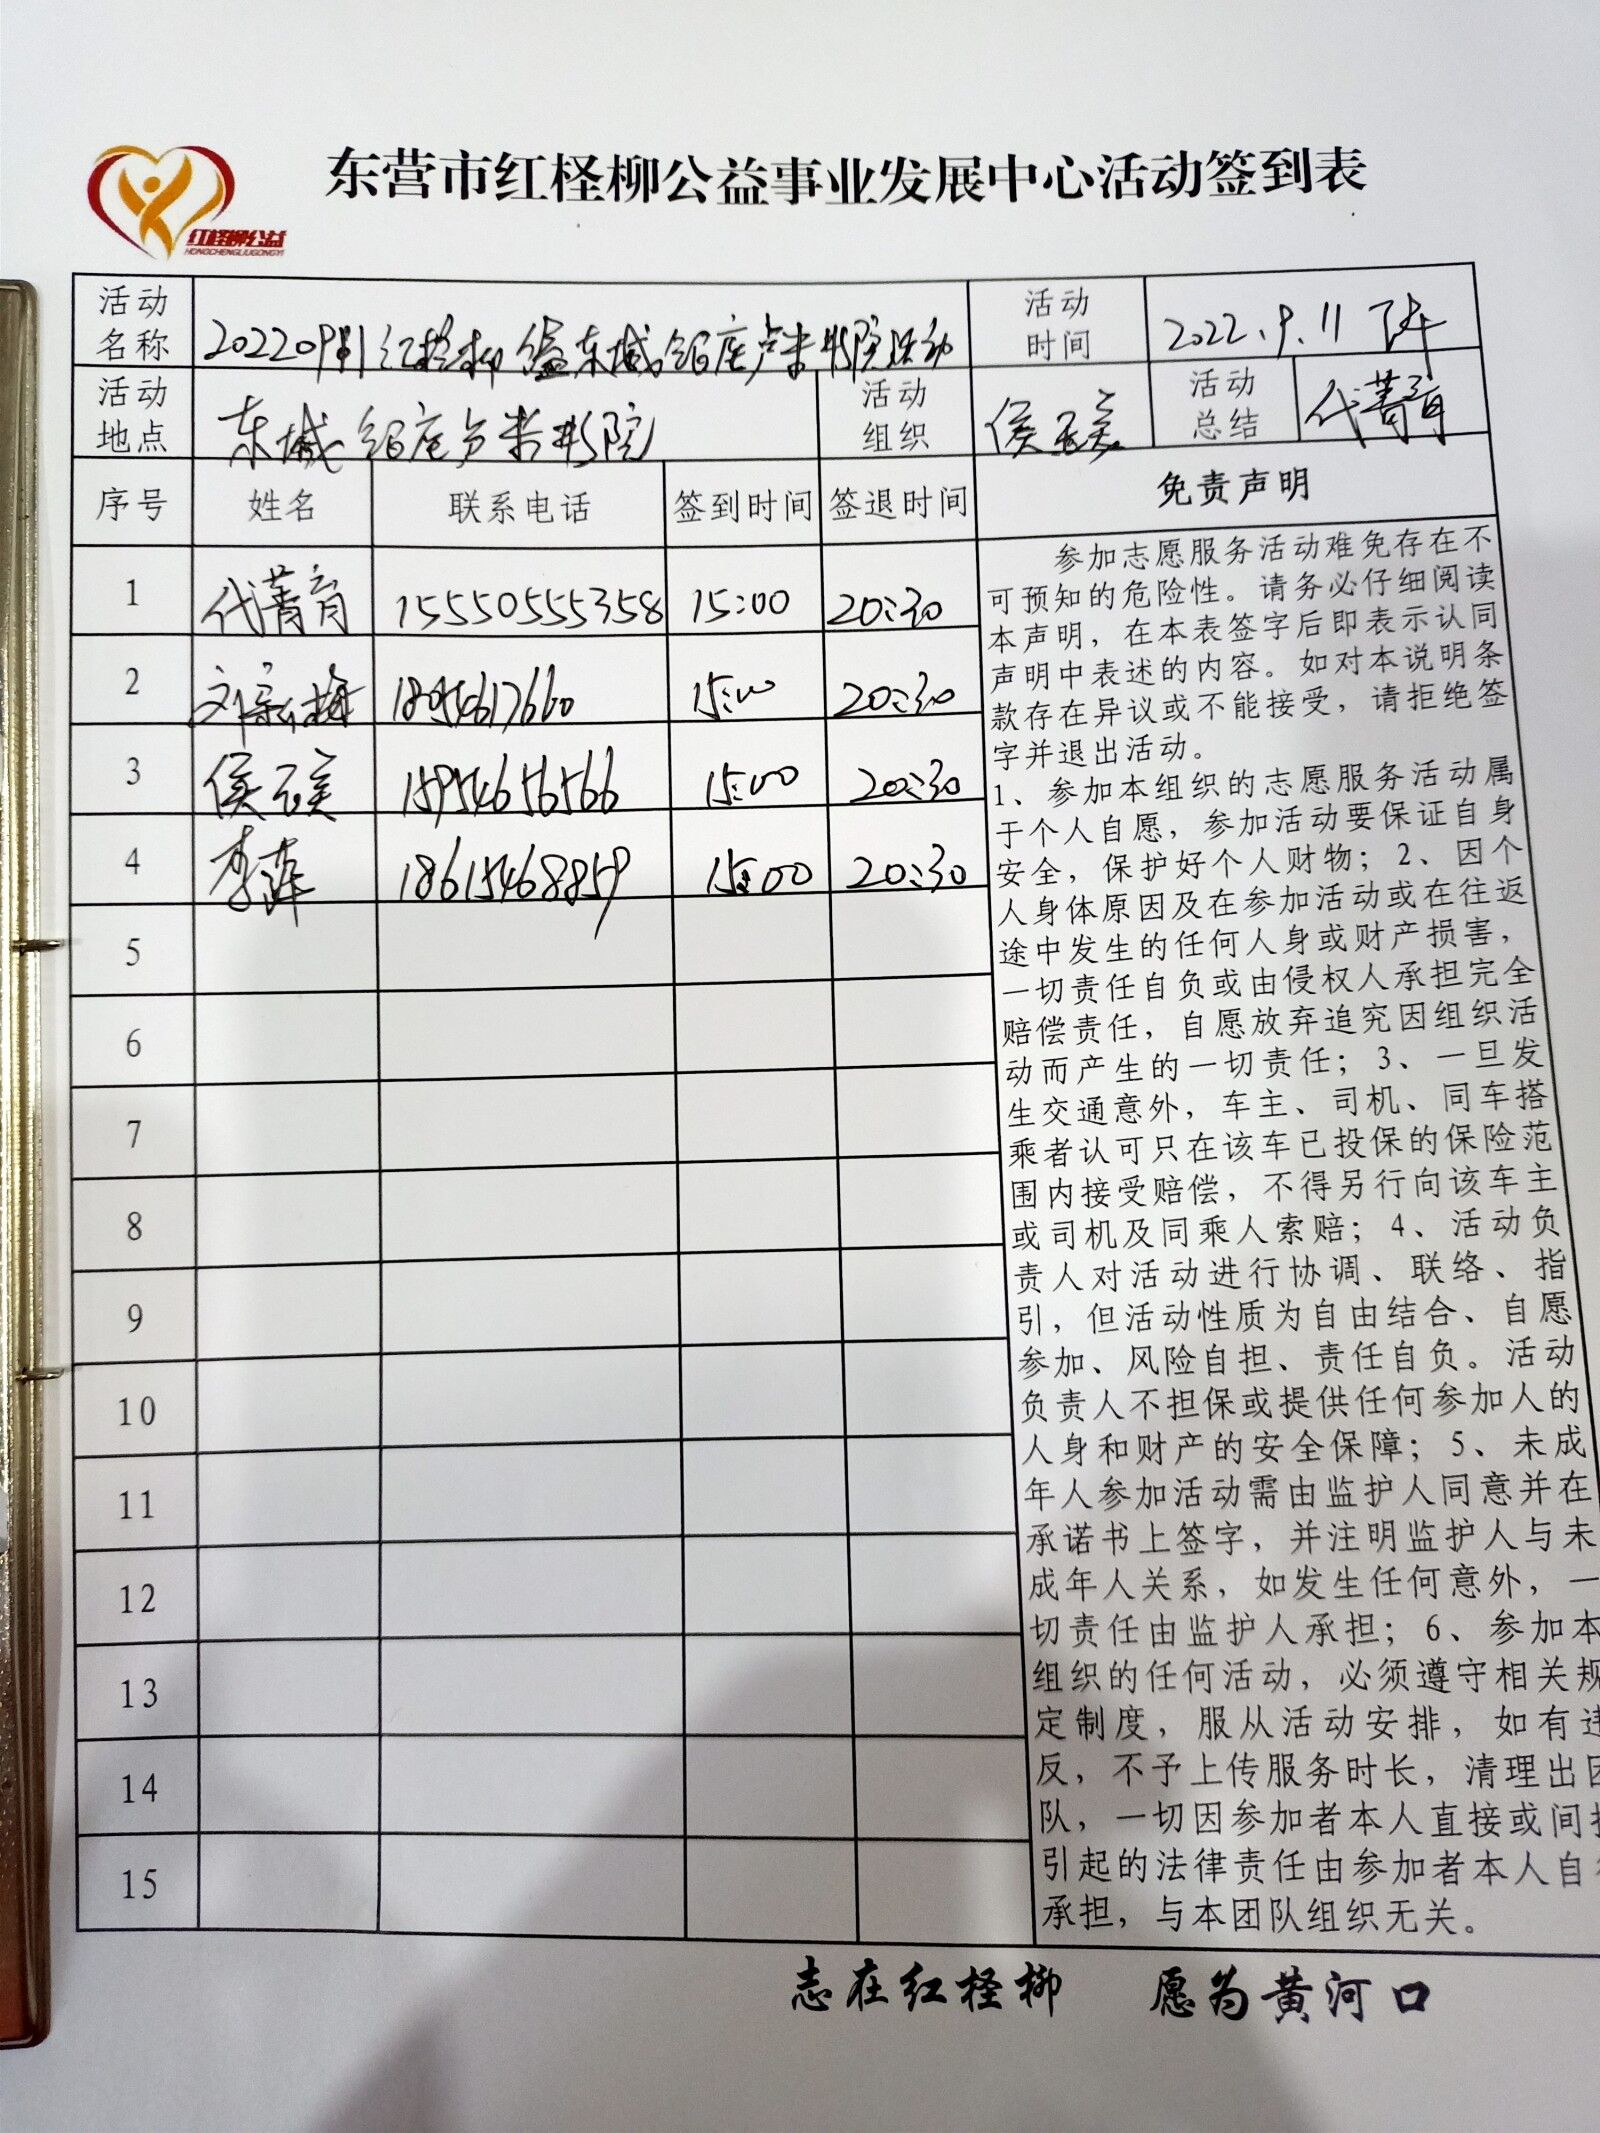 东营市红柽柳公益事业发展中心活动签到表
红柽柳公益
HONGCHENGLIUGONGYI
活动名称
红柽柳
东城银座
书院活动
活动时间
2022.9.11 下午
活动地点
东城银座
书院
活动组织
侯
活动总结
代菁育
序号 姓名 联系电话 签到时间 签退时间 免责声明
1 代菁育 15550555358 15:00 20:30
2 刘 梅 18954617660 15:00 20:30
3 侯 15954656566 15:00 20:30
4 李萍 18615468859 15:00 20:30
5
6
7
8
9
10
11
12
13
14
15
参加志愿服务活动难免存在不
可预知的危险性。请务必仔细阅读
本声明，在本表签字后即表示认同
声明中表述的内容。如对本说明条
款存在异议或不能接受，请拒绝签
字并退出活动。
1、参加本组织的志愿服务活动属
于个人自愿，参加活动要保证自身
安全，保护好个人财物；2、因个
人身体原因及在参加活动或在往返
途中发生的任何人身或财产损害，
一切责任自负或由侵权人承担完全
赔偿责任，自愿放弃追究因组织活
动而产生的一切责任；3、一旦发
生交通意外，车主、司机、同车搭
乘者认可只在该车已投保的保险范
围内接受赔偿，不得另行向该车主
或司机及同乘人索赔；4、活动负
责人对活动进行协调、联络、指
引，但活动性质为自由结合、自愿
参加、风险自担、责任自负。活动
负责人不担保或提供任何参加人的
人身和财产的安全保障；5、未成
年人参加活动需由监护人同意并在
承诺书上签字，并注明监护人与未
成年人关系，如发生任何意外，一
切责任由监护人承担；6、参加本
组织的任何活动，必须遵守相关规
定制度，服从活动安排，如有违
反，不予上传服务时长，清理出团
队，一切因参加者本人直接或间接
引起的法律责任由参加者本人自行
承担，与本团队组织无关。
志在红柽柳 愿为黄河口